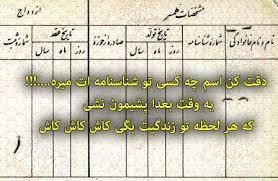 مشخصات همسر
ازدواج
نام و نام خانوادگی
شماره شناسنامه
تاریخ تولد
روز
ماه
سال
صادره از حوزه
تاریخ عقد
روز
ماه
سال
شماره ثبت
دقت کن اسم چه کسی تو شناسنامه ات میره.....!!!
یه وقت بعدا پشیمون نشی
که هر لحظه تو زندگیت بگی کاش کاش کاش